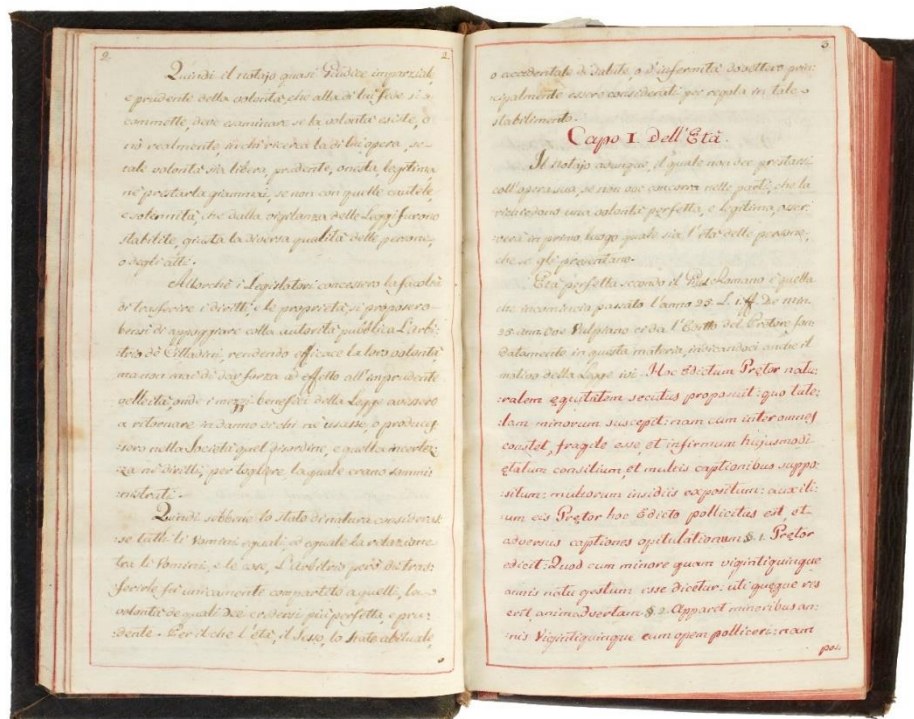 2.
2.
Quindi il notajo quasi Giudice imparziale,
e prudente della volontà, che alla di lui fede si
commette, deve esaminare se la volontà esiste, o
nò realmente, in chi ricerca la di lui opera, se
tale volontà sia libera, prudente, onesta, legitima
nè prestarla giammai, se non con quelle cautele,
e solennità, che dalla vigilanza delle Leggi furono
stabilite, giusta la diversa qualità delle persone,
o degli atti.
Allorchè i Legislatori concessero la facoltà
di trasferire i diritti, e le proprietà, si proposero
bensì di appoggiare colla autorità pubblica l'arbi:
trio de' Cittadini, rendendo efficace la loro volontà
ma non mai di dar forza ad effetto all'imprudente
velleità, onde i mezzi benefici della Legge avessero
a ritornare in danno di chi ne usasse, o produces
sero nella Società quel disordine, e quella incertez
za ne' diritti, per togliere la quale erano sommi
nistrati.
Quindi sebbene lo stato di natura considerasse
se tutti li Uomini eguali, ed eguale la relazione
tra li Uomini, e le cose, L'arbitrio però di tras:
ferirle fu unicamente compartito a quelli, la
volontà de quali dee credersi più perfetta, e pru:
dente. Per il che l'età, il sesso, lo stato abituale,
3
o accidentale di salute, o d'infermità dovettero prin:
cipalmente essere considerati per regola in tale
stabilimento.
Capo I. Dell'Età.
Il Notajo adunque, il quale non dee prestarsi
coll'opera sua, se non ove concorra nelle parti, che la
richiedono una volontà perfetta, e legitima, osser:
verà in primo luogo quale sia l'età delle persone,
che se gli presentano.
Età perfetta secondo il Gius Romano è quella
che incomincia passato l'anno 25. L. 1. ff. De min.
25. ann. Ove Ulpiano ci dà l'Editto del Pretore, fon
datamente in questa materia, indicandoci anche il
motivo della Legge ivi = Hoc Edictum Prętor natu:
ralem ęquitatem secutus proposuit: quo tute:
lam minorum suscepit: nam cum inter omnes
constet, fragile esse, et infirmum hujusmodi
ętatum consilium, et multis captionibus suppo:
situm: multorum insidiis expositum: auxili:
um eis Prętor hoc Edicto pollicitus est, et
adversus captiones opitulationem. §. 1. Prętor
edicit: Quod cum minore quam vigintiquinque
annis natu gestum esse dicetur: uti quęque res
erit, animadvertam. §. 2. Apparet minoribus an:
nis Vigintiquinque eum opem polliceri: nam
pos.